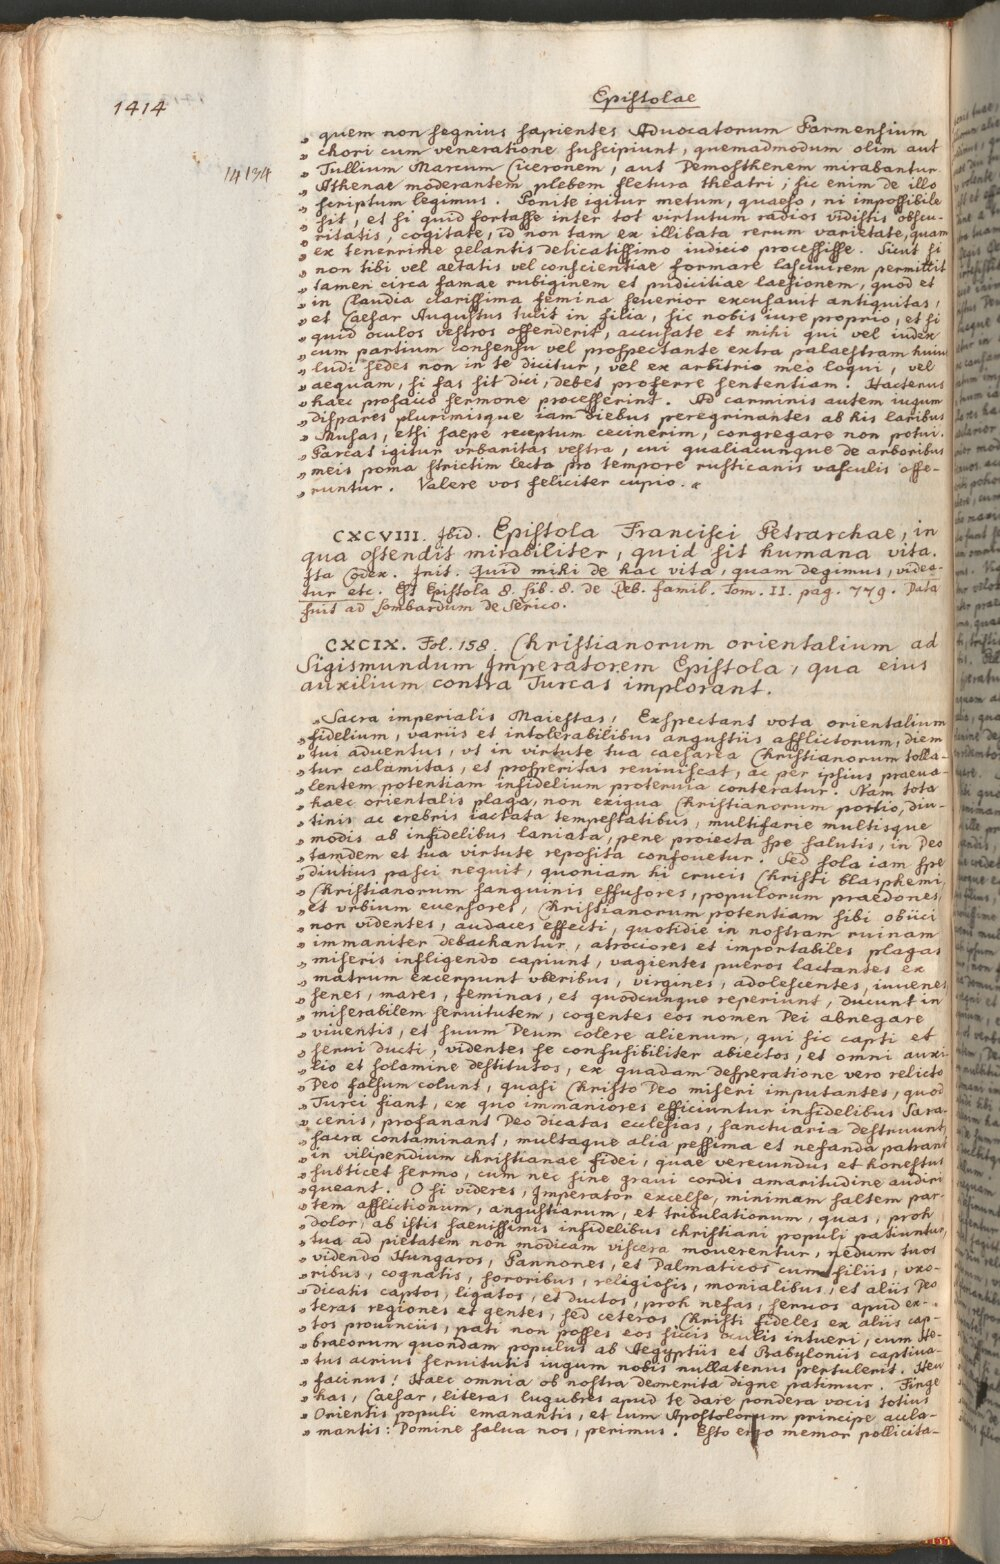 1414
Epistolae
„ quem non segnius sapientes Advocatorum Parmensium
„ chori cum veneratione suscipiunt, quemadmodum olim aut
„ Tullium Marcum Ciceronem, aut Demosthenem mirabantur
„ Athenae moderantem plebem fletura theatri; sic enim de illo
„ scriptum legimus. Ponite igitur metum, quaeso, ni impossibile
„ sit, et si quid fortasse inter tot virtutum radios vidistis obscu-
„ ritatis, cogitate, id non tam ex illibata rerum varietate, quam
„ ex tenerrime zelantis delicatissimo iudicio processisse. Sicut si
„ non tibi vel aetatis vel conscientiae formare lascivirem permittit
„ tamen circa famae rubiginem et pudicitiae laesionem, quod et
„ in Claudia clarissima femina severior excusauit antiquitas,
„ et Caesar Augustus tulit in filia, sic nobis iure proprio, et si
„ quid oculos vestros offenderit, accusate et mihi qui vel iudex
„ cum partium consensu vel prospectante extra palaestram huius
„ ludi sedes non in te dicitur, vel ex arbitrio meo loqui, vel
„ aequam, si fas sit dici, debes proferre sententiam. Hactenus
„ haec prosaico sermone processerint. Ad carminis autem iugum
„ dispares plurimisque iam diebus peregrinantes ab his laribus
„ Musas, etsi saepe receptum cecinerim, congregare non potui.
„ Parcat igitur vrbanitas vestra, cui qualiacunque de arboribus
„ meis poma strictim lecta pro tempore rusticanis vasculis offe-
„ runtur. Valere vos feliciter cupio. “
CXCVIII. Ibid. Epistola Francisci Petrarchae, in
qua ostendit mirabiliter, quid sit humana vita.
Ita Codex. Init. Quid mihi de hac vita, quam degimus, videa-
tur etc. Est Epistola 8. Lib. 8. de Reb. famil. Tom. II. pag. 779. Data
fuit ad Lombardum de Serico.
CXCIX. Fol. 158. Christianorum orientalium ad
Sigismundum Imperatorem Epistola, qua eius
auxilium contra Turcas implorant.
„ Sacra imperialis Maiestas, Exspectant vota orientalium
„ fidelium, variis et intolerabilibus angustiis afflictorum, diem
„ tui aduentus, vt in virtute tua caesarea Christianorum tolla-
„ tur calamitas, et prosperitas reuiuiscat, ac per ipsius praeua-
„ lentem potentiam infidelium proteruia conteratur. Nam tota
„ haec orientalis plaga, non exigua Christianorum portio, diu-
„ tinis ac crebris iactata tempestatibus, multifarie multisque
„ modis ab infidelibus laniata, pene proiecta spe salutis, in Deo
„ tamdem et tua virtute reposita confouetur. Sed sola iam spe
„ diutius pasci nequit, quoniam hi crucis Christi blasphemi,
„ Christianorum sanguinis effusores, populorum praedones,
„ et vrbium euersores, Christianorum potentiam sibi obiici
„ non videntes, audaces effecti, quotidie in nostram ruinam
„ immaniter debachantur, atrociores et importabiles plagas
„ miseris infligendo capiunt, vagientes pueros lactantes ex
„ matrum excerpunt vberibus, virgines, adolescentes, iuuenes
„ senes, mares, feminas, et quodcunque reperiunt, ducunt in
„ miserabilem seruitutem, cogentes eos nomen Dei abnegare
„ viuentis, et suum Deum colere alienum, qui sic capti et
„ serui ducti, videntes se confusibiliter abiectos, et omni auxi
„ lio et solamine destitutos, ex quadam desperatione vero relicto
„ Deo falsum colunt, quasi Christo Deo miseri imputantes, quod
„ Turci fiant, ex quo immaniores efficiuntur infidelibus Sara-
„ cenis, profanant Deo dicatas ecclesias, sanctuaria destruunt,
„ sacra contaminant, multaque alia pessima et nefanda patrant
„ in vilipendium christianae fidei, quae verecundus et honestus
„ subticet sermo, cum nec sine graui cordis amaritudine audiri
„ queant. O si videres, Imperator excelse, minimam saltem par-
„ tem afflictionum, angustiarum, et tribulationum, quas, proh
„ dolor, ab istis saeuissimis infidelibus christiani populi patiuntur,
„ tua ad pietatem non modicam viscera mouerentur, nedum tuos
„ videndo Hungaros, Pannones, et Dalmaticos cum filiis, vxo-
„ ribus, cognatis, sororibus, religiosis, monialibus, et aliis Deo
„ dicatis captos, ligatos, et ductos, proh nefas, seruos apud ex-
„ teras regiones et gentes, sed ceteros Christi fideles ex aliis cap-
„ tos prouinciis, pati non posses eos siccis oculis intueri, cum He-
„ braeorum quondam populus ab Aegyptiis et Babyloniis captiua-
„ tus acrius seruitutis iugum nobis nullatenus pertulerit. Heu
„ facinus! Haec omnia ob nostra demerita digne patimur. Finge
„ has, Caesar, literas lugubres apud te dare pondera vocis totius
„ Orientis populi emanantis, et cum Apostolorum principe acla-
„ mantis: Domine salua nos, perimus. Esto ergo memor pollicita-